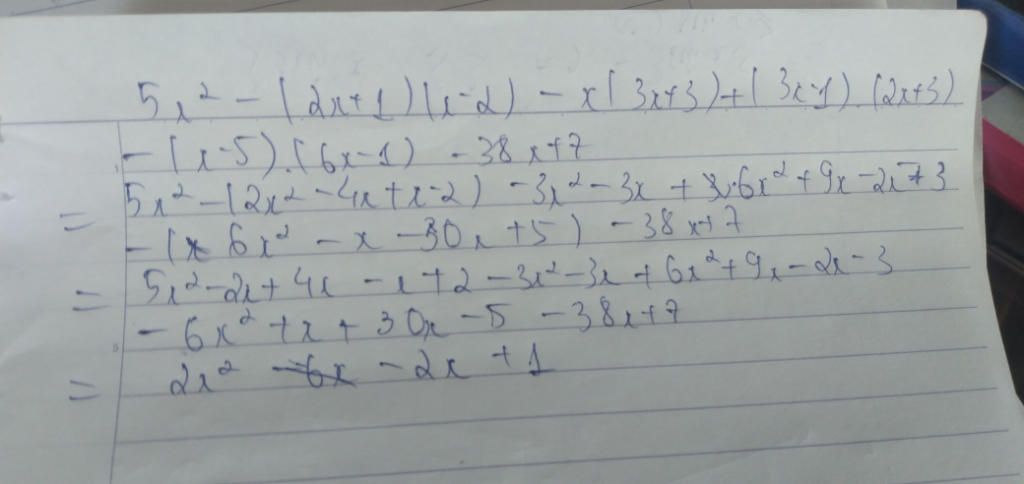 5x² - (2x+1)(x-2) - x(3x+3) + (3x-1).(2x+3)
- (x-5).(6x-1) - 38x+7
= 5x² - (2x² - 4x + x - 2) - 3x² - 3x + 6x² + 9x - 2x - 3
- (6x² - x - 30x + 5) - 38x + 7
= 5x² - 2x + 4x - x + 2 - 3x² - 3x + 6x² + 9x - 2x - 3
- 6x² + x + 30x - 5 - 38x + 7
= 2x² - 2x + 1